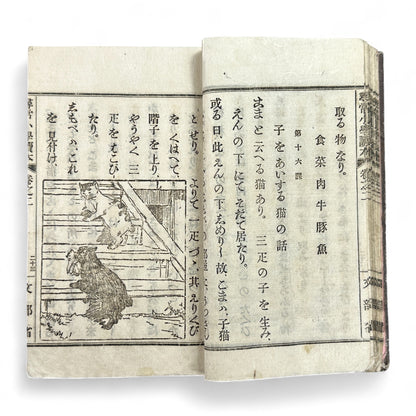 取る物なり。
食菜肉牛豚魚
第十六課
子をあいする猫の話
こまと云へる猫あり。三疋の子を生み、
えんの下にて、そだて居たり。
或る日、此えんの下しめりし故、こまハ、子猫
とせり。よりて一疋づゝ、其えりくび
をくはへて、
階子を上り、
やうやく、三
疋をはこび
たり。
しもべハ、これ
を見付け、
尋常小學讀本
卷之二
二十三
文部省
尋常小學讀本
卷之二
文部省